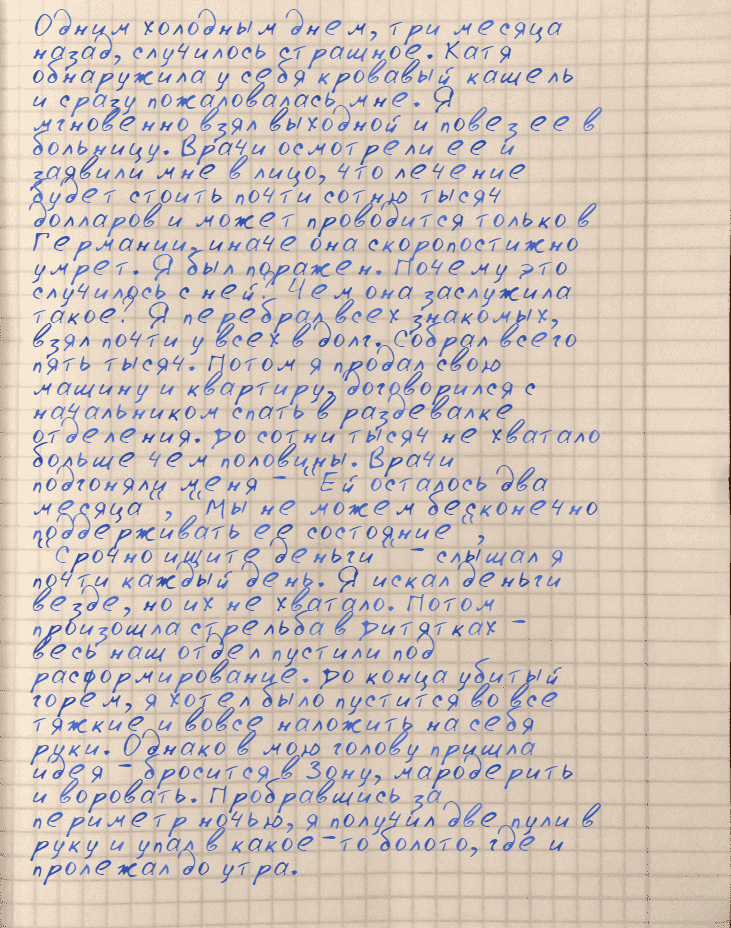 Одним холодным днем, три месяца
назад, случилось страшное. Катя
обнаружила у себя кровавый кашель
и сразу пожаловалась мне. Я
мгновенно взял выходной и повез ее в
больницу. Врачи осмотрели ее и
заявили мне в лицо, что лечение
будет стоить почти сотню тысяч
долларов и может проводится только в
Германии, иначе она скоропостижно
умрет. Я был поражен. Почему это
случилось с ней? Чем она заслужила
такое? Я перебрал всех знакомых,
взял почти у всех в долг. Собрал всего
пять тысяч. Потом я продал свою
машину и квартиру, договорился с
начальником спать в раздевалке
отделения. До сотни тысяч не хватало
больше чем половины. Врачи
подгоняли меня - "Ей осталось два
месяца", "Мы не можем бесконечно
поддерживать ее состояние",
"Срочно ищите деньги" - слышал я
почти каждый день. Я искал деньги
везде, но их не хватало. Потом
произошла стрельба в Дитятках -
весь наш отдел пустили под
расформирование. До конца убитый
горем, я хотел было пустится во все
тяжкие и вовсе наложить на себя
руки. Однако в мою голову пришла
идея - бросится в Зону, мародерить
и воровать. Пробравшись за
периметр ночью, я получил две пули в
руку и упал в какое-то болото, где и
пролежал до утра.